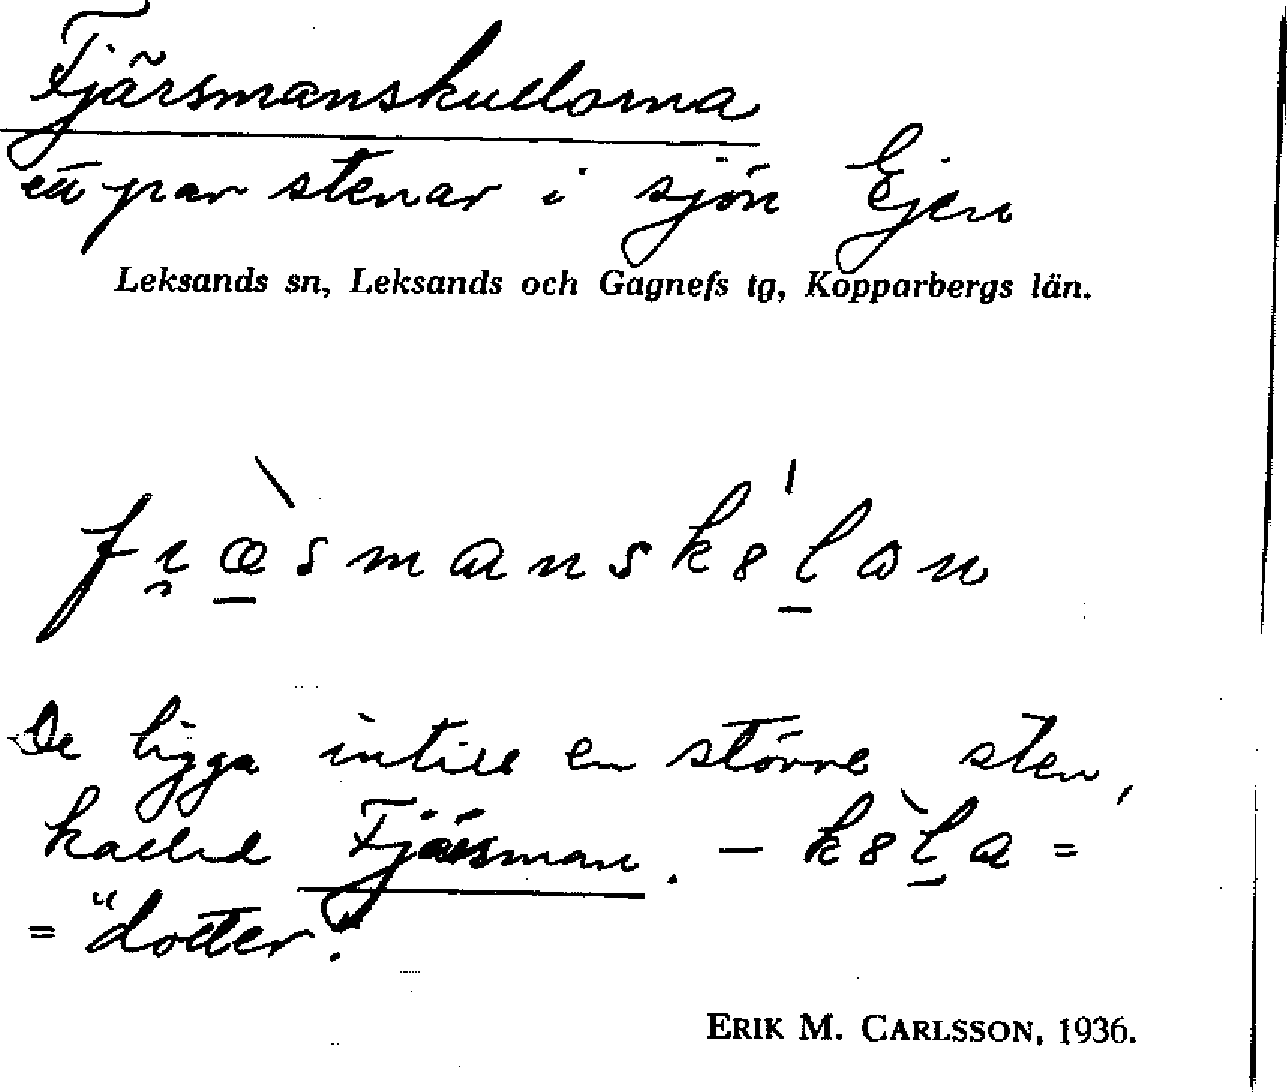 Fjärsmanskullorna
ett par stenar i sjön Ejen
Leksands sn, Leksands och Gagnefs tg, Kopparbergs län.
De ligga intill en större sten,
kallad Fjärsman. – k8̀l̲a =
= "dotter".
ERIK M. CARLSSON, 1936.